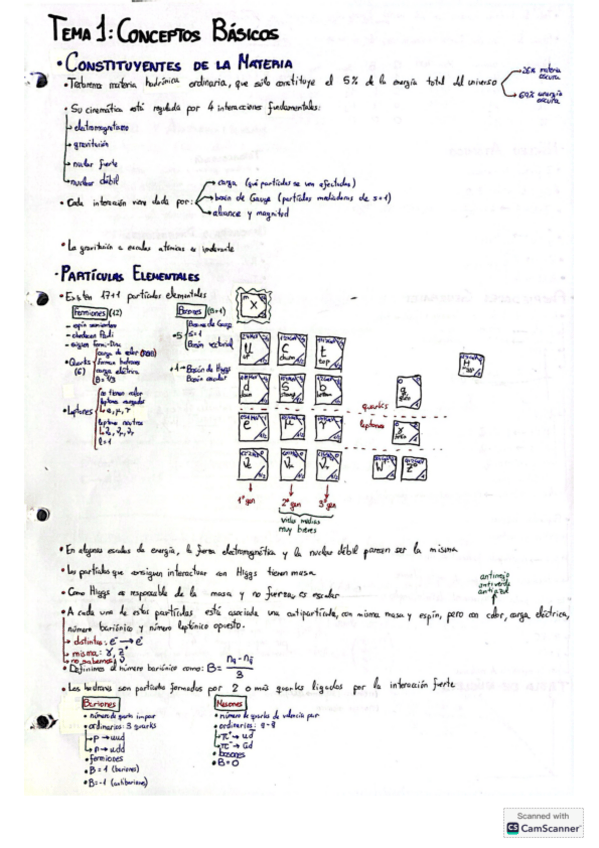 TEMA 1: CONCEPTOS BÁSICOS
• CONSTITUYENTES DE LA MATERIA
materia hadrónica ordinaria, que sólo constituye el 5% de la energía total del universo
26% materia oscura
69% energía oscura
• Su cinemática está regulada por 4 interacciones fundamentales:
electromagnetismo
gravitación
nuclear fuerte
nuclear débil
• Cada interacción viene dada por:
carga (qué partículas se ven afectadas)
bosón de Gauge (partículas mediadoras de s=1)
alcance y magnitud
• La gravitación a escalas atómicas es irrelevante
• PARTÍCULAS ELEMENTALES
• Existen 17+1 partículas elementales
Fermiones (12)
- espín semientero
- obedecen Pauli
- siguen Fermi-Dirac
• Quarks (6)
carga de color
carga eléctrica
B = 1/3
• Leptones
no tienen color
leptones cargados
e, μ, τ
leptones neutros
l = 1
Bosones
• 5
Bosones de Gauge
s = 1
Bosón vectorial
• 1 → Bosón de Higgs
Bosón escalar
X
u
c
charm
t
top
H
d
down
s
strange
b
bottom
g
quarks
leptones
e
μ
τ
γ
W
Z⁰
1ª gen
2ª gen
3ª gen
vidas medias
muy breves
• En algunas escalas de energía, la fuerza electromagnética y la nuclear débil parecen ser la misma
• Las partículas que consiguen interactuar con Higgs tienen masa
• Como Higgs es responsable de la masa y no fuerza, es escalar
antirrojo
antiverde
antiazul
• A cada una de estas partículas está asociada una antipartícula, con misma masa y espín, pero con color, carga eléctrica,
número bariónico y número leptónico opuesto.
distintas: e⁻ → e⁺
misma: γ, Z⁰
no sabemos: ν
• Definimos el número bariónico como: B = (n_q - n_q̄)/3
• Los hadrones son partículas formadas por 2 o más quarks ligados por la interacción fuerte
Bariones
• número de quarks impar
• ordinarios: 3 quarks
p → uud
n → udd
• fermiones
• B = 1 (bariones)
• B = -1 (antibariones)
Mesones
• número de quarks de valencia par
• ordinarios: q-q̄
π⁺ → ud̄
π⁻ → ūd
• bosones
• B = 0
Scanned with
CS CamScanner